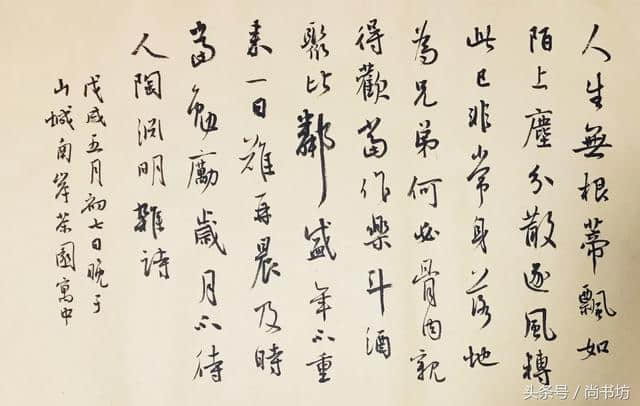 人生無根蒂飄如
陌上塵分散逐風轉
此已非常身落地
為兄弟何必骨肉親
得歡當作樂斗酒
聚比鄰盛年不重
來一日難再晨及時
當勉勵歲月不待
人陶淵明雜詩
戊戌五月初七日晚于
山城南岸茶園寓中
头条号／尚书坊